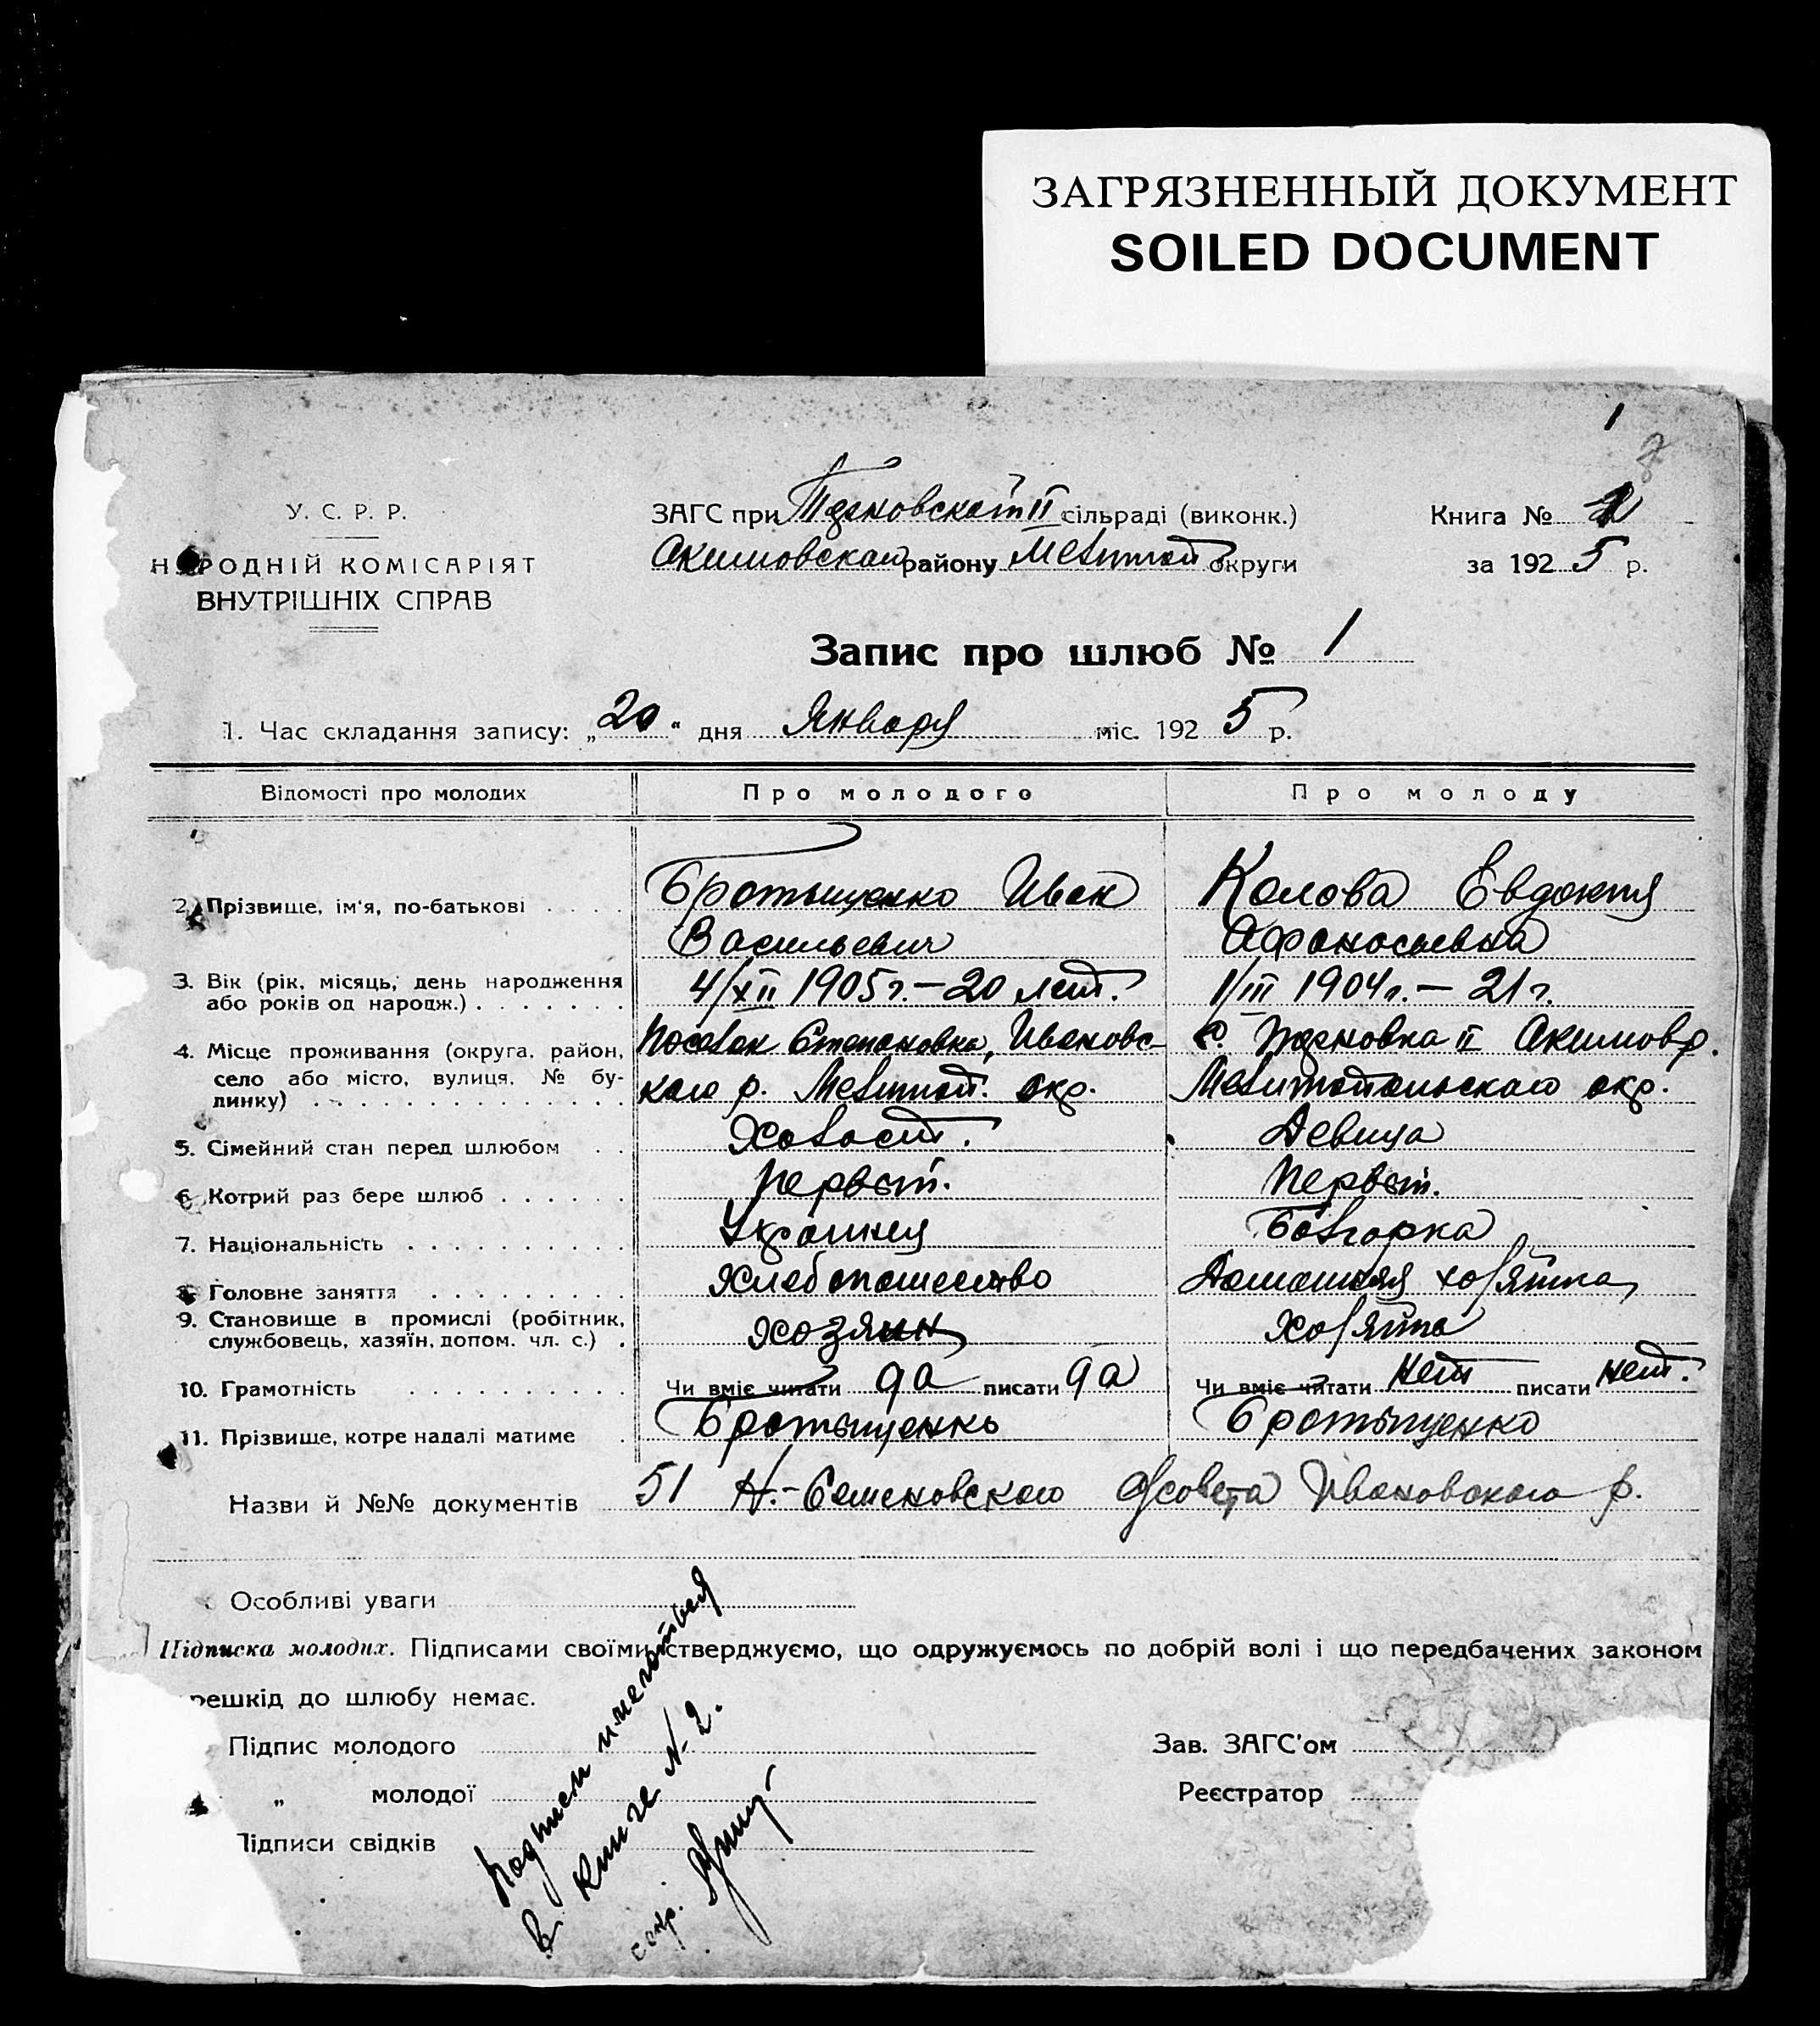 ЗАГРЯЗНЕННЫЙ ДОКУМЕНТ
SOILED DOCUMENT
1
8
У. С. Р. Р.
НАРОДНІЙ КОМІСАРІЯТ
ВНУТРІШНІХ СПРАВ
ЗАГС при II сільраді (виконк.)
Акимовскаго району Мелитоп округи
Книга №
за 1925 р.
Запис про шлюб № 1
1. Час складання запису: „20“ дня Января міс. 1925 р.
Відомості про молодих Про молодого Про молоду
2. Прізвище, ім'я, по-батькові . . . . Братыщенко Иван Калова Евдокия
Васильевич Афанасьевна
3. Вік (рік, місяць, день народження
або років од народж.) . . . . . . . 4/XII 1905 г. – 20 лет. 1/III 1904 г. – 21 г.
4. Місце проживання (округа, район, Поселок Степановка, Ивановс- с. II Акимов р.
село або місто, вулиця, № бу-
динку) . . . . . . . . . . . . . . каго р. Мелитоп. окр. Мелитопольскаго окр.
5. Сімейний стан перед шлюбом . . Холост. Девица
6. Котрий раз бере шлюб . . . . . . Первый. Первый.
7. Національність . . . . . . . . . . Украинец Болгарка
8. Головне заняття . . . . . . . . . Хлебопашество Домашняя хозяйка
9. Становище в промислі (робітник,
службовець, хазяїн, допом. чл. с.) . хозяин хозяйка
10. Грамотність . . . . . . . . . . Чи вміє читати да писати да Чи вміє читати нет писати нет.
11. Прізвище, котре надалі матиме . Братыщенко Братыщенко
Назви й №№ документів 51 Н.-Семеновского с/совета Ивановского р.
Особливі уваги
Підписка молодих. Підписами своїми стверджуємо, що одружуємось по добрій волі і що передбачених законом
решкід до шлюбу немає.
Підпис молодого
„ молодої
Підписи свідків
Зав. ЗАГС'ом
Реєстратор
Подписи имеються
в книге № 2.
секр.